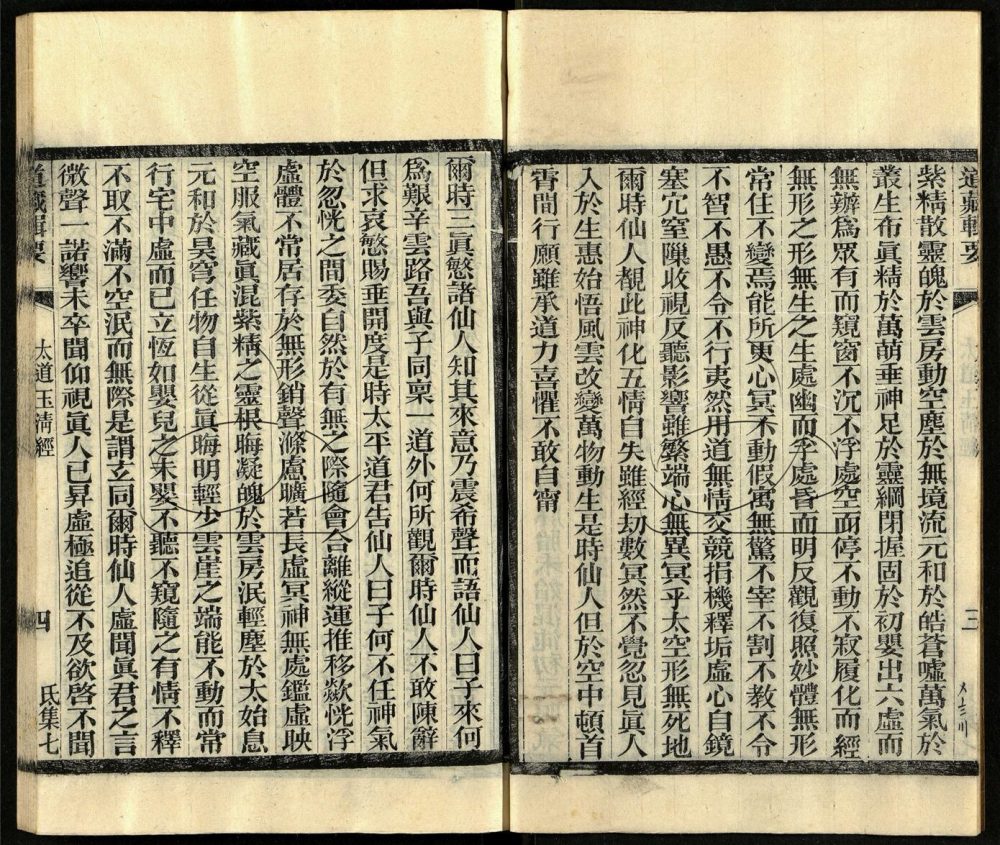 道藏輯要
三
紫精散靈魄於雲房動空塵於無境流元和於皓蒼噓萬氣於
叢生布眞精於萬萌垂神足於靈綱閉握固於初嬰出六虛而
無辦爲眾有而窺窗不沉不浮處空而停不動不寂履化而經
無形之形無生之生處幽而孚處昏而明反觀復照妙體無形
常住不變焉能所更心冥不動假寓無驚不宰不割不教不令
不智不愚不令不行夷然用道無情交競捐機釋垢虛心自鏡
塞宂窒隟收視反聽影響雖繁端心無異冥乎太空形無死地
爾時仙人覩此神化五情自失雖經刧數冥然不覺忽見眞人
入於生惠始悟風雲改變萬物動生是時仙人但於空中頓首
霄間行願雖承道力喜懼不敢自甯
爾時三眞慜諸仙人知其來意乃震希聲而語仙人曰子來何
爲艱辛雲路吾與子同稟一道外何所觀爾時仙人不敢陳辭
但求哀慜賜垂開度是時太平道君告仙人曰子何不任神氣
於忽恍之間委自然於有無之際隨會合離縱運推移歘恍浮
虛體不常居存於無形銷聲滌慮曠若長虛冥神無處鑑虛映
空服氣藏眞混紫精之靈根晦凝魄於雲房泯輕塵於太始息
元和於昊穹任物自生從眞晦明輕步雲崖之端能不動而常
行宅中虛而已立恆如嬰兒之未嬰不聽不窺隨之有情不釋
不取不滿不空泯而無際是謂玄同爾時仙人虛聞眞君之言
微聲一諾響未卒聞仰視眞人已昇虛極追從不及欲啓不聞
道藏輯要
太道玉淸經
四
氐集七